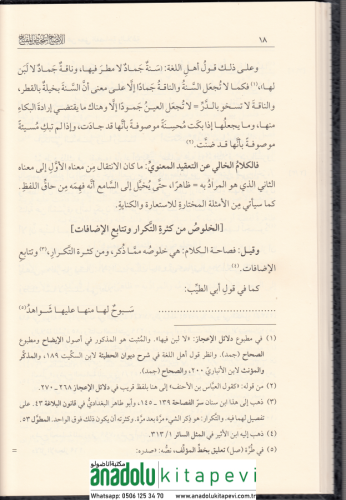 ١٨
الإيضاح لتلخيص المفتاح
وعلى ذلك قول أهل اللغة: سَنةٌ جَمادٌ لا مطرَ فيها، وناقةٌ جَمادٌ لا لَبَن
لها،(١) فكما لا تُجعَل السَّنة والناقةُ جَمادًا إلّا على معنى أنَّ السَّنة بخيلةٌ بالقطر،
والناقةَ لا تسخو بالدَّرّ = لا تجعل العينُ جَمودًا إلّا وهناك ما يقتضي إرادةَ البكاء
منها، وما يجعلُها إذا بكت مُحسِنةً موصوفةً بأنَّها قد جادَت، وإذا لم تبكِ مُسيئةً
موصوفةً بأنَّها قد ضنَّت.(٢)
فالكلامُ الخالي عن التعقيد المعنويّ: ما كان الانتقال مِن معناه الأوَّل إلى معناه
الثاني الذي هو المرادُ به = ظاهرًا، حتّى يُخيَّل إلى السامع أنَّه فهِمَه مِن حاقِّ اللفظ.
كما سيأتي مِن الأمثلة المختارة للاستعارة والكناية.
[الخلوصُ من كثرة التَّكرار وتتابع الإضافات]
وقيل: فصاحة الكلام: هي خلوصُه ممّا ذُكر، ومِن كثرة التَّكرار،(٣) وتتابع
الإضافات.(٤)
كما في قول أبي الطيِّب:
........................ سَبوحٌ لها منها عليها شَواهدُ(٥)
(١) في مطبوع دلائل الإعجاز: «لا لبن فيها». والمُثبت هو المذكور في أصول الإيضاح ومطبوع
الصحاح (جمد). وانظر قول أهل اللغة في شرح ديوان الحطيئة لابن السكّيت ١٨٩، والمذكّر
والمؤنّث لابن الأنباريّ ٢٠٠، والصحاح (جمد).
(٢) من قوله: «كقول العبّاس بن الأحنف» إلى هنا بلفظ قريب في دلائل الإعجاز ٢٦٨-٢٧٠.
(٣) ذهب إلى هذا ابن سنان سرّ الفصاحة ١٣٩-١٤٥، وأبو طاهر البغداديّ في قانون البلاغة ٤٣ على
تفصيل لهما فيه. والتَّكرار: هو ذِكر الشيء مرَّة بعد مرَّة. وكثرته أن يكون ذلك فوق الواحد. المطوّل ٥٣
(٤) ذهب إليه ابن الأثير في المثل السائر ٣١٣/١.
(٥) في طُرَّة (صل) تعليق بخطّ المؤلّف، نصُّه: «صدره:
=
مكتبة الأناضول
anadolu kitapevi
Whatsapp: 0506 125 34 70
www.anadolukitapevi.com